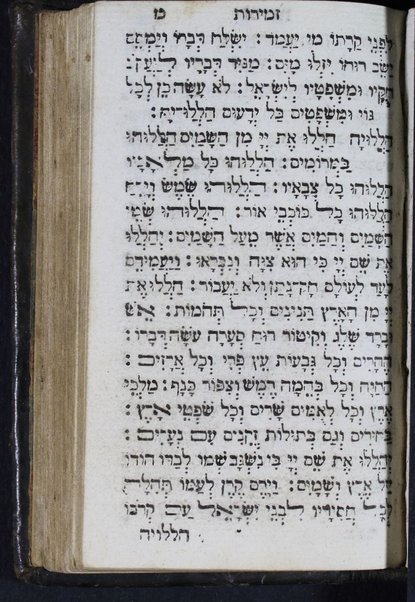 זמירות מ
לפְנֵי קָרָתוֹ מִי יַעֲמֹד: יִשְׁלַח דְּבָרוֹ וְיַמְסֵם
יַשֵּׁב רוּחוֹ יִזְּלוּ מָיִם: מַגִּיד דְּבָרָיו לְיַעֲקֹב
חֻקָּיו וּמִשְׁפָּטָיו לְיִשְׂרָאֵל: לֹא עָשָׂה כֵן לְכָל
גּוֹי וּמִשְׁפָּטִים בַּל יְדָעוּם הַלְלוּיָהּ:
הַלְלוּיָהּ הַלְלוּ אֶת יְיָ מִן הַשָּׁמַיִם הַלְלוּהוּ
בַּמְּרוֹמִים: הַלְלוּהוּ כָּל מַלְאָכָיו
הַלְלוּהוּ כָּל צְבָאָיו: הַלְלוּהוּ שֶׁמֶשׁ וְיָרֵחַ
הַלְלוּהוּ כָּל כּוֹכְבֵי אוֹר: הַלְלוּהוּ שְׁמֵי
הַשָּׁמַיִם וְהַמַּיִם אֲשֶׁר מֵעַל הַשָּׁמָיִם: יְהַלְלוּ
אֶת שֵׁם יְיָ כִּי הוּא צִוָּה וְנִבְרָאוּ: וַיַּעֲמִידֵם
לָעַד לְעוֹלָם חָק־נָתַן וְלֹא יַעֲבוֹר: הַלְלוּ אֶת
יְיָ מִן הָאָרֶץ תַּנִּינִים וְכָל תְּהֹמוֹת: אֵשׁ
וּבָרָד שֶׁלֶג וְקִיטוֹר רוּחַ סְעָרָה עֹשָׂה דְבָרוֹ:
הֶהָרִים וְכָל גְּבָעוֹת עֵץ פְּרִי וְכָל אֲרָזִים:
הַחַיָּה וְכָל בְּהֵמָה רֶמֶשׂ וְצִפּוֹר כָּנָף: מַלְכֵי
אֶרֶץ וְכָל לְאֻמִּים שָׂרִים וְכָל שֹׁפְטֵי אָרֶץ:
בַּחוּרִים וְגַם בְּתוּלוֹת זְקֵנִים עִם נְעָרִים:
יְהַלְלוּ אֶת שֵׁם יְיָ כִּי נִשְׂגָּב שְׁמוֹ לְבַדּוֹ הוֹדוֹ
עַל אֶרֶץ וְשָׁמָיִם: וַיָּרֶם קֶרֶן לְעַמּוֹ תְּהִלָּה
לְכָל חֲסִידָיו לִבְנֵי יִשְׂרָאֵל עַם קְרֹבוֹ
הללויה